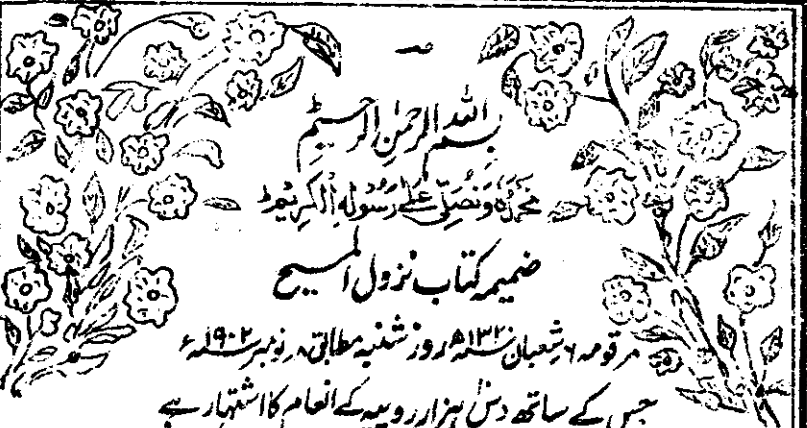 بسم الله الرحمن الرحيم
نحمده ونصلى على رسوله الكريم
ضمیمہ کتاب نزول المسیح
مرقومہ ۶ شعبان سنہ ۱۳۲۰ھ روز شنبہ مطابق ۸ نومبر سنہ ۱۹۰۲ء
جس کے ساتھ دس ہزار روپیہ کے انعام کا اشتہار ہے